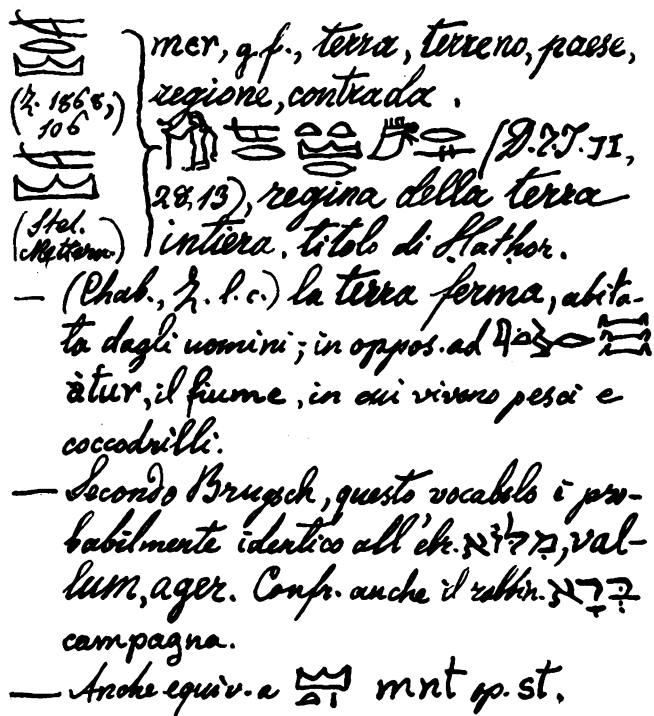 mer, g.f., terra, terreno, paese,
(Z. 1868, regione, contrada.
106)
(D.T.J. II,
28,13), regina della terra
(Stel. Mettern.) intiera, titolo di Hathor.
— (Chab., Z. l. c.) la terra ferma, abita-
ta dagli uomini; in oppos. ad
àtur, il fiume, in cui vivono pesci e
coccodrilli.
— Secondo Brugsch, questo vocabolo è pro-
babilmente identico all'ebr. מִלּוֹא, val-
lum, ager. Confr. anche il rabbin. בָּרָא
campagna.
— Anche equiv. a mnt op. st.